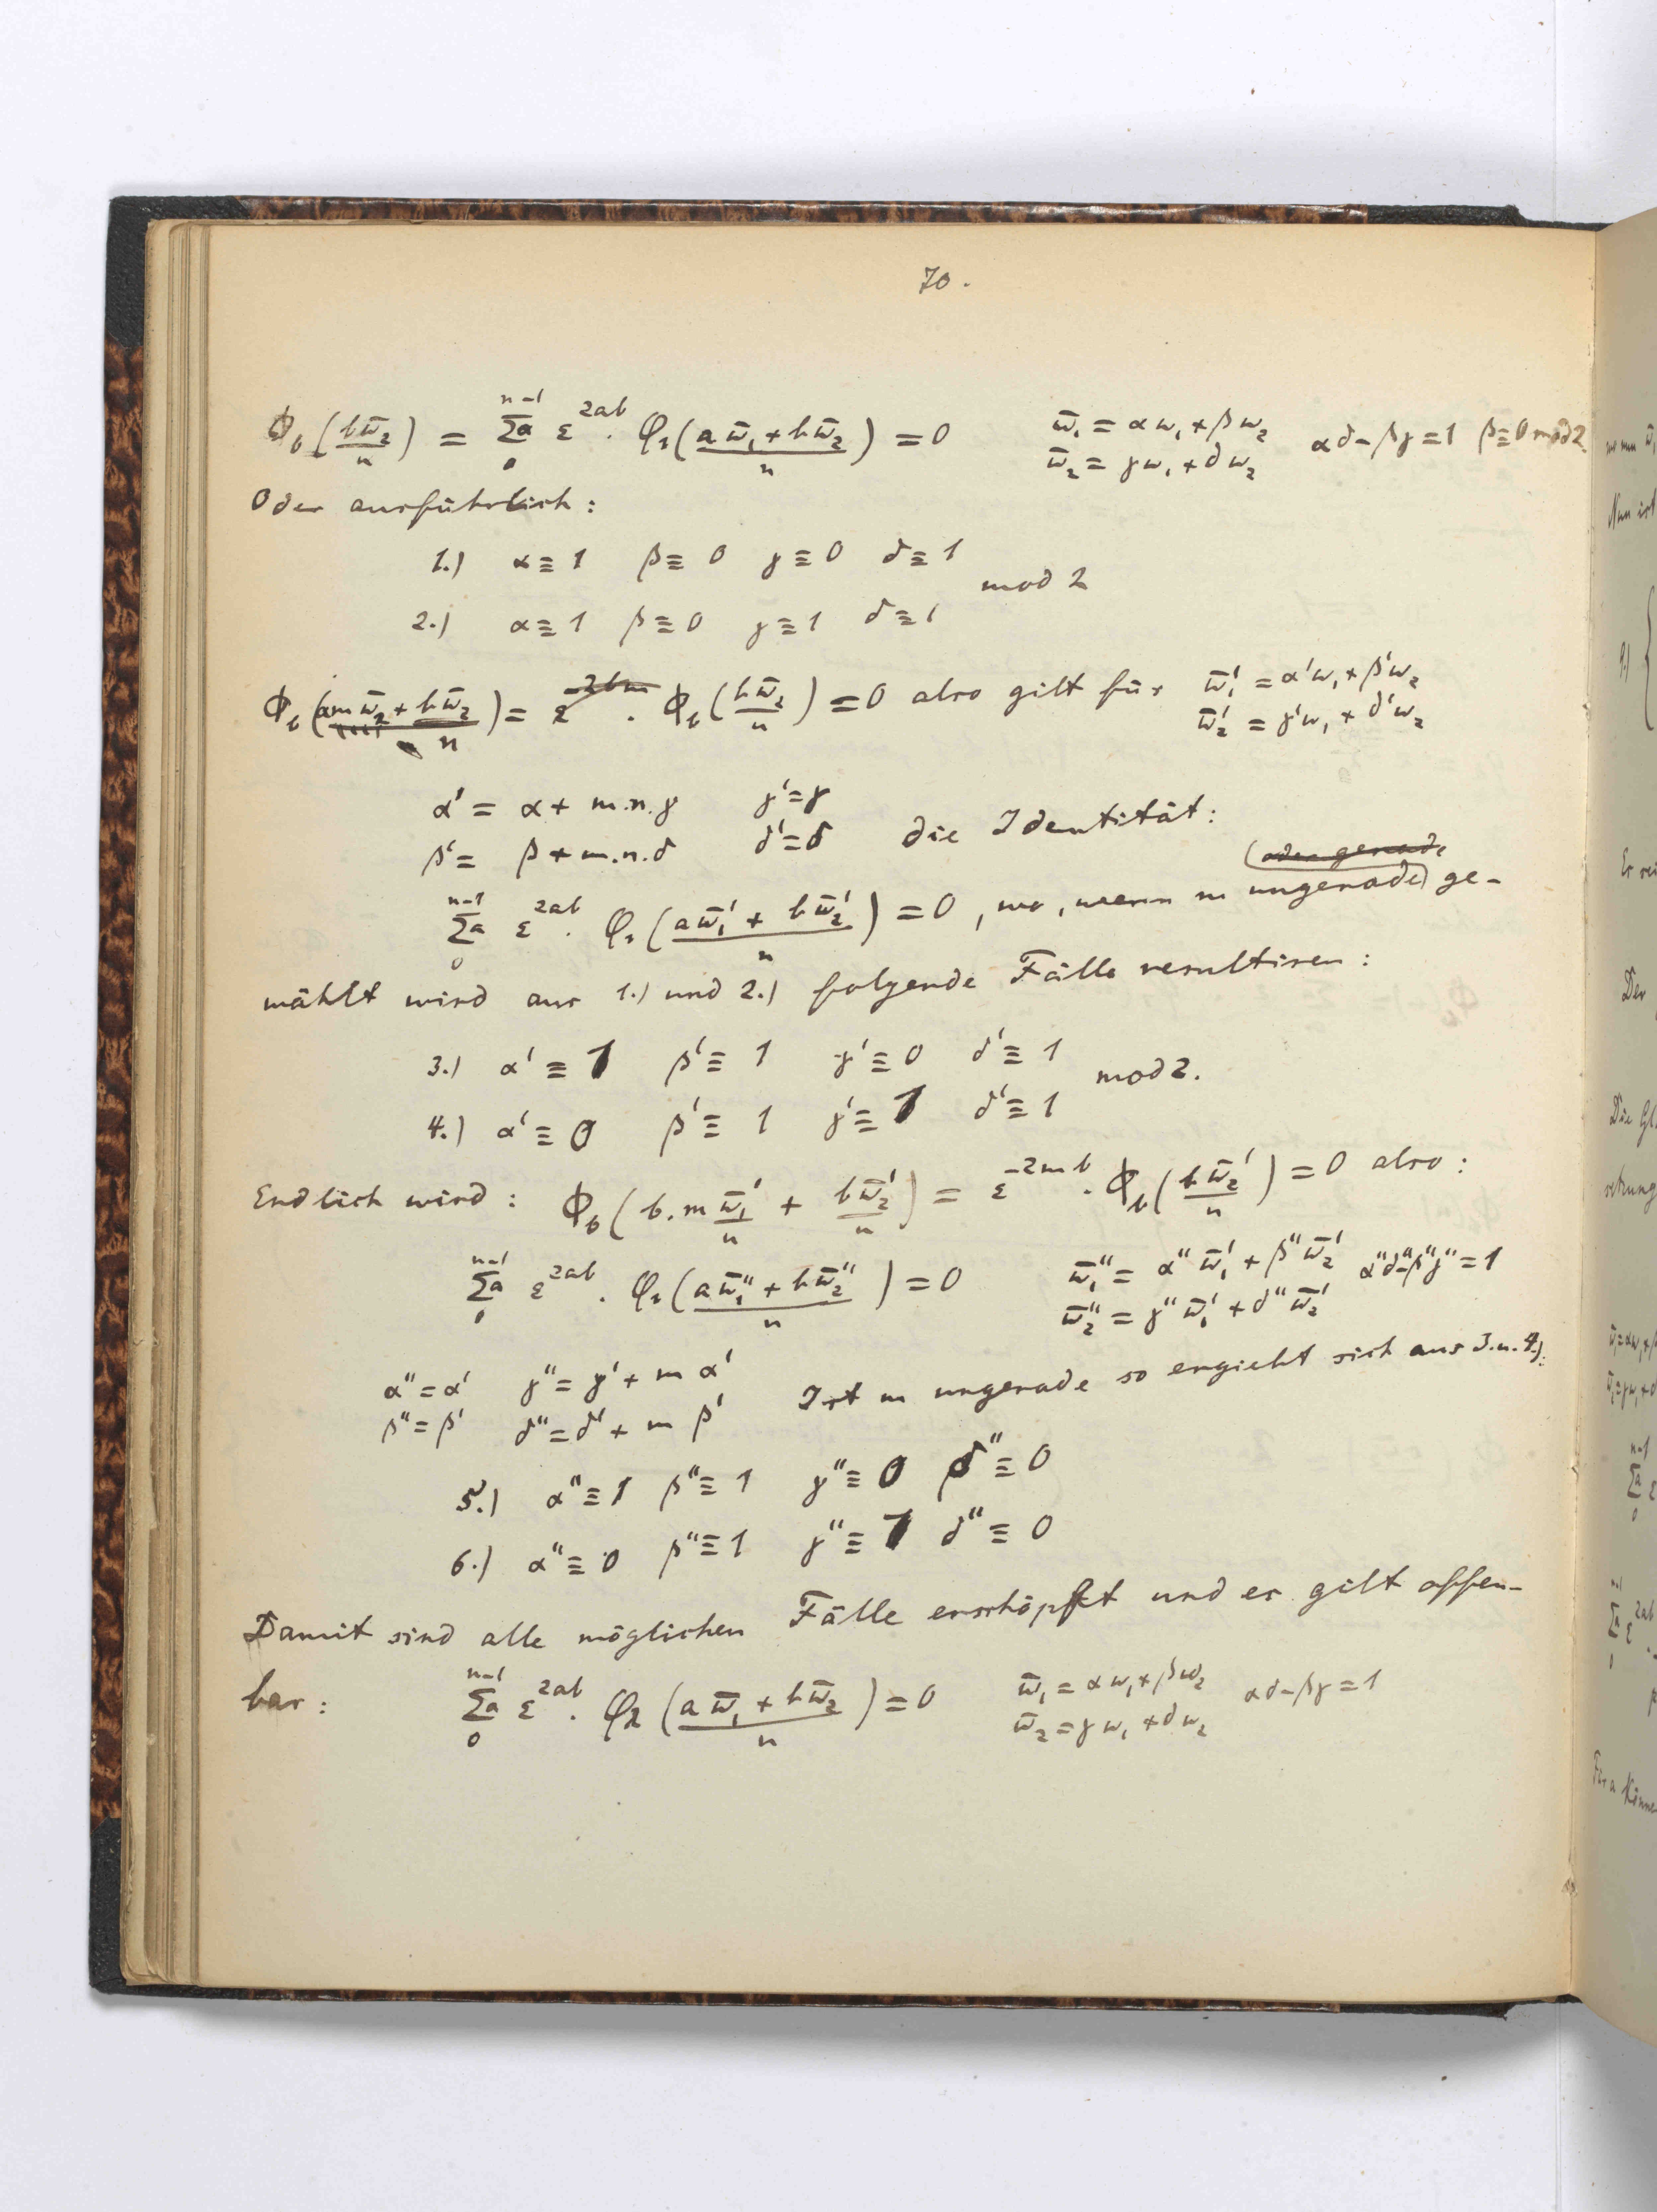 70.
Φ_b (bω̄₂/n) = Σa₀ⁿ⁻¹ ε^{2ab} · φ₁((aω̄₁ + bω̄₂)/n) = 0   ω̄₁ = αω₁ + βω₂   αδ − βγ = 1   β ≡ 0 mod 2
ω̄₂ = γω₁ + δω₂
Oder ausführlich:
1.) α ≡ 1   β ≡ 0   γ ≡ 0   δ ≡ 1
mod 2
2.) α ≡ 1   β ≡ 0   γ ≡ 1   δ ≡ 1
· Φ_b (bω̄₂/n) = 0 also gilt für   ω̄₁' = α'ω₁ + β'ω₂
ω̄₂' = γ'ω₁ + δ'ω₂
α' = α + m.n.γ   γ' = γ
β' = β + m.n.δ   δ' = δ   die Identität:
(oder gerade
Σa₀ⁿ⁻¹ ε^{2ab} · φ₁((aω̄₁' + bω̄₂')/n) = 0, wo, wenn m ungerade) ge-
wählt wird aus 1.) und 2.) folgende Fälle resultiren:
3.) α' ≡ 1   β' ≡ 1   γ' ≡ 0   δ' ≡ 1
mod 2.
4.) α' ≡ 0   β' ≡ 1   γ' ≡ 1   δ' ≡ 1
Endlich wird: Φ_b (b.m ω̄₁'/n + bω̄₂'/n) = ε^{−2mb} · Φ_b (bω̄₂'/n) = 0 also:
Σa₀ⁿ⁻¹ ε^{2ab} · φ₁((aω̄₁'' + bω̄₂'')/n) = 0   ω̄₁'' = α''ω̄₁' + β''ω̄₂'   α''δ''−β''γ'' = 1
ω̄₂'' = γ''ω̄₁' + δ''ω̄₂'
α'' = α'   γ'' = γ' + m α'
β'' = β'   δ'' = δ' + m β'   Ist m ungerade so ergiebt sich aus 3. u. 4.):
5.) α'' ≡ 1   β'' ≡ 1   γ'' ≡ 0   δ'' ≡ 0
6.) α'' ≡ 0   β'' ≡ 1   γ'' ≡ 1   δ'' ≡ 0
Damit sind alle möglichen Fälle erschöpft und es gilt offen-
bar:   Σa₀ⁿ⁻¹ ε^{2ab} · φ₂((aω̄₁ + bω̄₂)/n) = 0   ω̄₁ = αω₁ + βω₂   αδ − βγ = 1
ω̄₂ = γω₁ + δω₂